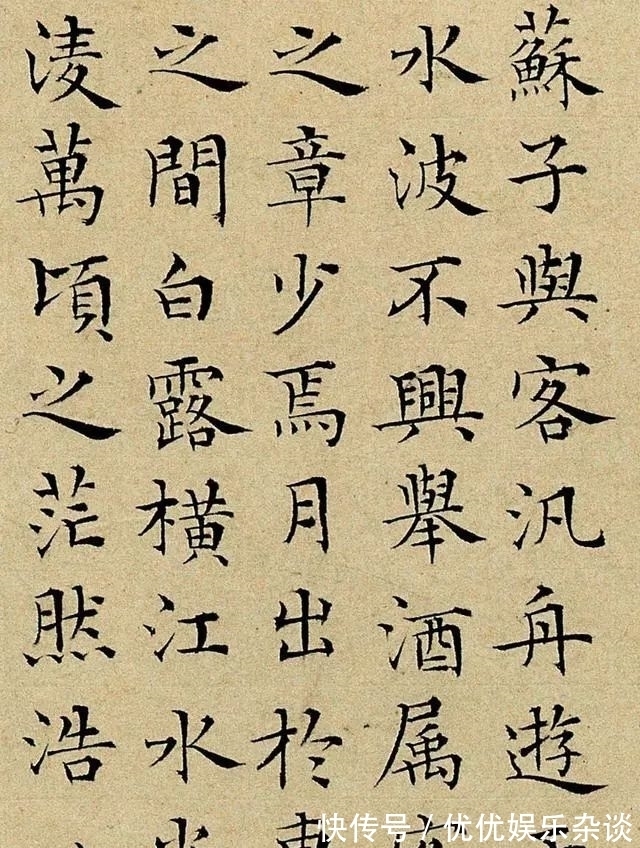 蘇子與客汎舟遊
水波不興舉酒属
之章少焉月出於
之間白露橫江水
淩萬頃之茫然浩
快传号/优优娱乐杂谈